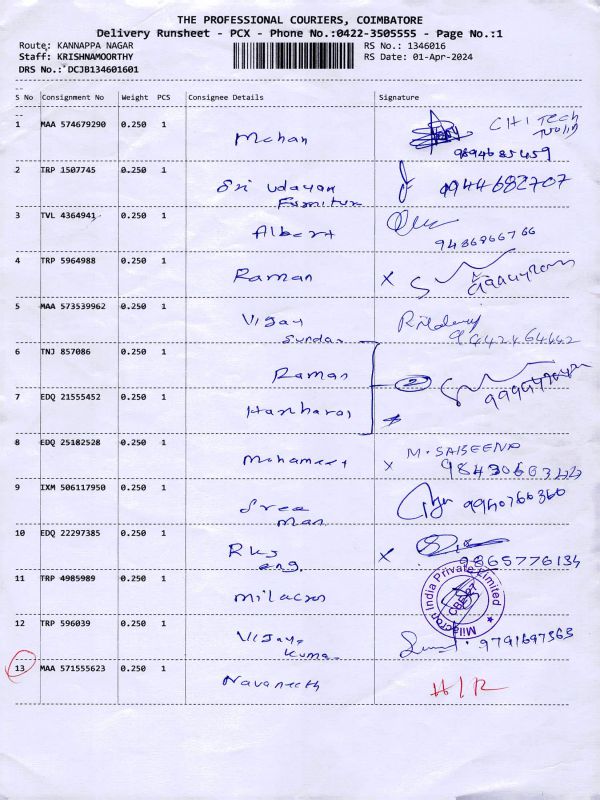 THE PROFESSIONAL COURIERS, COIMBATORE
Delivery Runsheet - PCX - Phone No.:0422-3505555 - Page No.:1
Route: KANNAPPA NAGAR RS No.: 1346016
Staff: KRISHNAMOORTHY RS Date: 01-Apr-2024
DRS No.: DCJB134601601
S No Consignment No Weight PCS Consignee Details Signature
1 MAA 574679290 0.250 1 Mohan CHI Tech
9894685459
2 TRP 1507745 0.250 1 Sri Udayan 9944682707
Furniture
3 TVL 4364941 0.250 1 Albert
9486966766
4 TRP 5964988 0.250 1 Raman X
5 MAA 573539962 0.250 1 Vijay
Sundar
6 TNJ 857086 0.250 1 Raman 2
7 EDQ 21555452 0.250 1 Hariharas
8 EDQ 25182528 0.250 1 Mohameet X M. SABEENA
9 IXM 506117950 0.250 1 Sree 9940766360
man
10 EDQ 22297385 0.250 1 RKS X 9865776134
eng.
11 TRP 4985989 0.250 1 Milacron
Milacron India Private Limited
CBE-27
12 TRP 596039 0.250 1 Vijaya 9791697363
Kumar
13 MAA 571555623 0.250 1 Navaneeth H/R